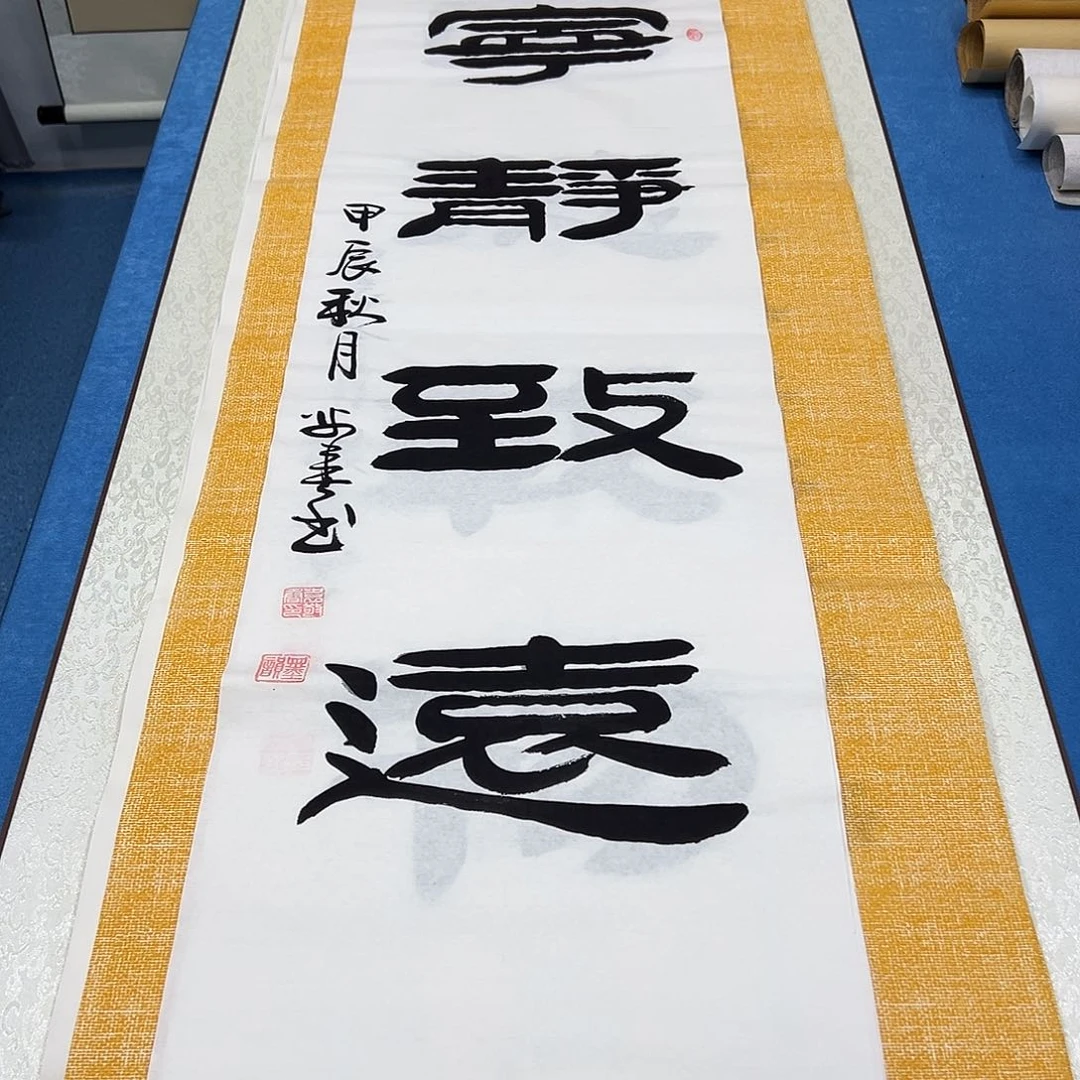 寧靜致遠
甲辰秋月
書